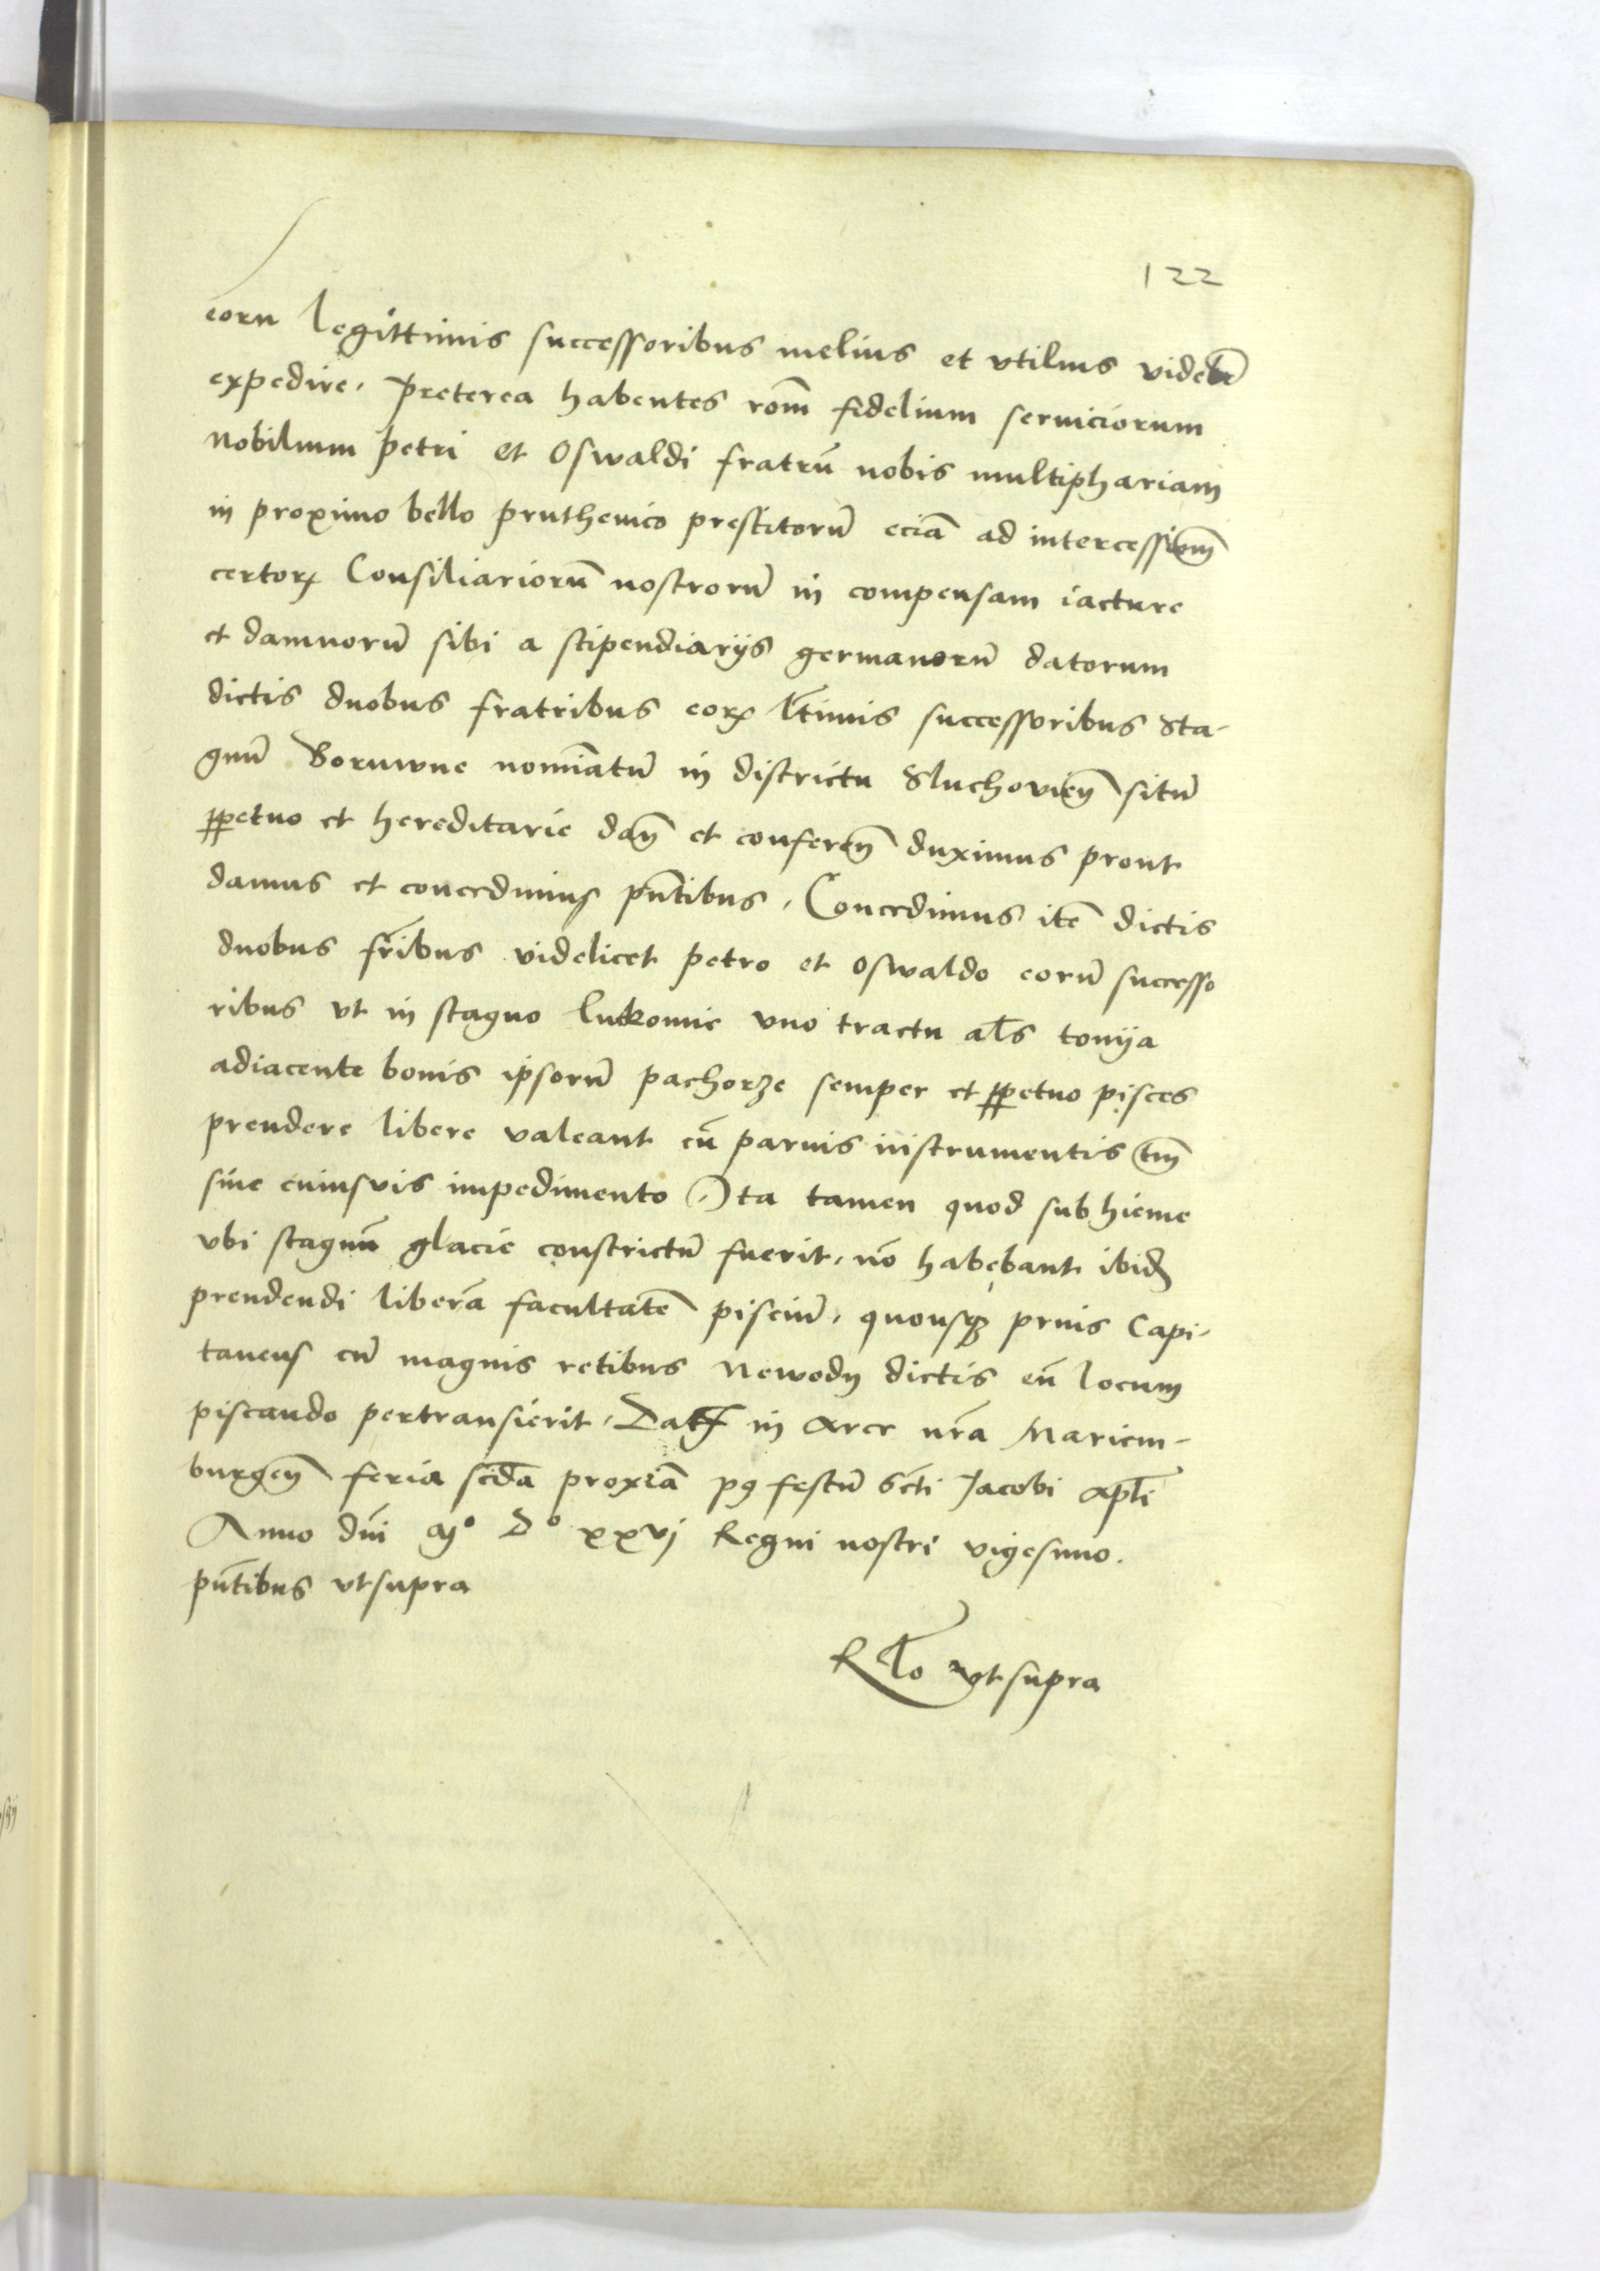 122
eoru legittimis successoribus melius et vtilius videbr̄
expedire. Preterea habentes rom̄ fidelium seruiciorum
Nobilium petri et Oswaldi fratrū nobis multiphariam
in proximo bello pruthenico prestitorū eciā ad intercessiom̄
certorꝝ Consiliariorū nostrorū in compensam iacture
et damnorū sibi a stipendiarijs germanorū datorum
dictis duobus fratribus eorꝝ ltīmis successoribus Sta-
gnū Boruwne nomiatū in districtu Sluchovień situ̅
ꝑpetuo et hereditarie dań et conferen̄ duximus prout
damus et concedimus pn̄tibus. Concedimus itē dictis
duobus fr̄ibus videlicet petro et Oswaldo eorū successo
ribus vt in stagno Lukomie vno tractu al̄s tonija
adiacente bonis ipsorū pachorze semper et ꝑpetuo pisces
prendere libere valeant cū paruis instrumentis tm̄
sine cuiusvis impedimento Ita tamen quod sub hieme
vbi stagnū glacie constrictū fuerit, nō habebant ibidē
prendendi liberā facultatē pisciū, quousqꝫ prius Capi-
taneus cū magnis retibus Newody dictis eū locum
piscando pertransierit. Datꝭ in Arce nr̄a Mariem-
burgeń feria scd̄a proxiā pꝰ festū Sc̄ti Jacobi apl̄i
Anno dn̄i Mº Dº xxvj Regni nostri vigesimo.
pn̄tibus vtsupra
Rl̄o vtsupra